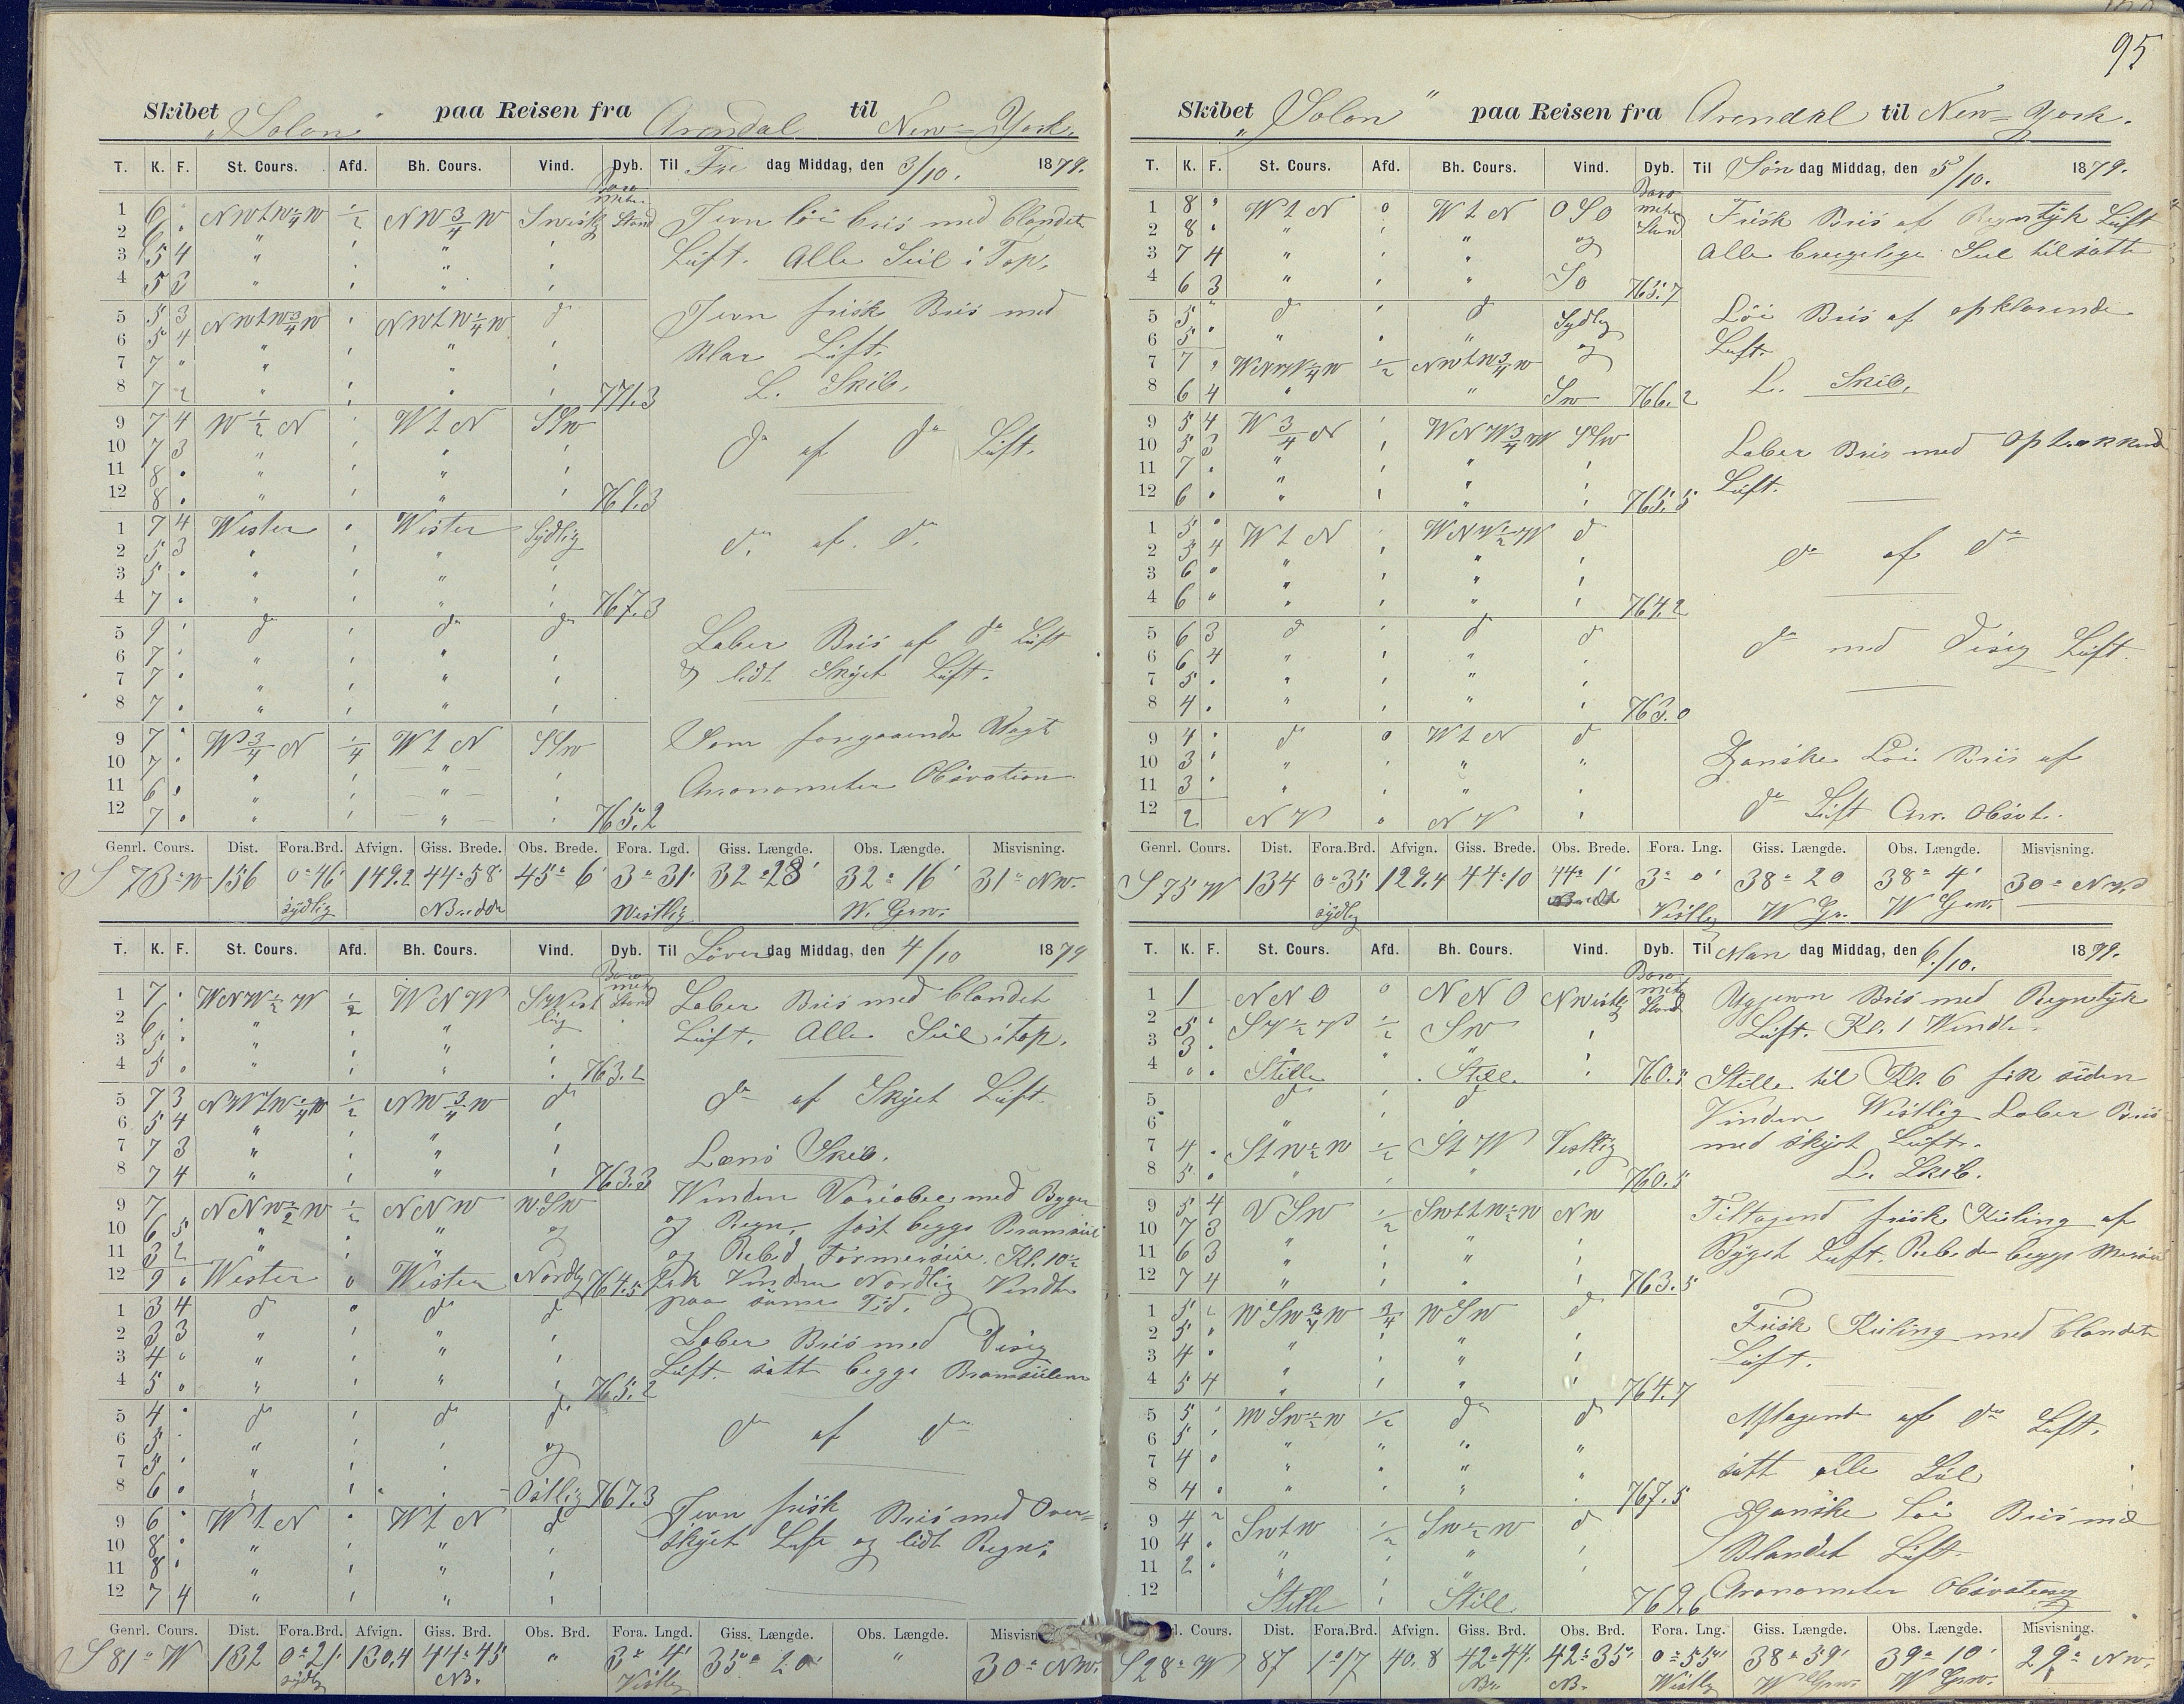 95
Skibet "Solon" paa Reisen fra Arendal til New=York.
T. K. F. St. Cours. Afd. Bh. Cours. Vind. Dyb. Til Fre dag Middag, den 3/10. 1879.
Barometer Stand
1 6 . NWtW 1/4 W 1/2 NW 3/4 W Jevn löi bris med blandet
2 6 . " " Luft. Alle Seil i Top.
3 5 4 " "
4 5 3 " "
5 5 3 NWtW 3/4 W NWtW 1/4 W do Jevn frisk Bris med
6 5 4 " " klar Luft.
7 7 " " "
8 7 2 " " 771.3 L. Skib.
9 7 4 W 1/2 N WtN SSW do af do Luft.
10 7 3 " "
11 8 . " "
12 8 . " " 769.3
1 7 4 Wester Wester Sydlig do af do
2 5 3 " "
3 5 . " "
4 7 . " " 767.3
5 7 do do do Laber Bris af do Luft
6 7 . " " & lidt Skyet Luft.
7 7 . " "
8 7 . " "
9 7 . W 3/4 N 1/4 WtN SSW Som foregaaende Vagt
10 7 . " " Cronometer Obsvation
11 6 . " "
12 7 . " " 765.2
Genrl. Cours. Dist. Fora.Brd. Afvign. Giss. Brede. Obs. Brede. Fora. Lgd. Giss. Længde. Obs. Længde. Misvisning.
S 73° W 156 0° 46' 149.2 44° 58' 45° 6' 3° 31' 32° 28' 32° 16' 31° NW.
sydlig N Bredde Westlig W. Grw.
T. K. F. St. Cours. Afd. Bh. Cours. Vind. Dyb. Til Löver dag Middag, den 4/10 1879
Barometer Stand
1 7 . WNW 1/2 W 1/2 WNW SyVestlig Laber Bris med blandet
2 6 . " " Luft. Alle Seil i top.
3 5 . " "
4 5 . " " 763.2
5 7 3 NWtW 1/4 W 1/2 NW 3/4 W do do af Skyet Luft.
6 5 4 " "
7 7 3 " " Læns Skib.
8 7 4 " " 763.3
9 7 NNW 1/2 W 1/2 NNW WSW Winden Variabel med Byger
10 6 5 " " og og Regn, fast begge Bramseil
11 3 2 " " og Rebed Formerseil. Kl. 10 1/2
12 9 . Wester 0 Wester Nordlig 764.5 Fik Vinden Nordlig Vendte
1 3 4 do do do paa samme Tid.
2 3 3 " " Laber Bris med Disig
3 4 . " " Luft. satt begge Bramseilene
4 5 . " " 765.2
5 4 . do do do do af do
6 5 . " og
7 5 . "
8 6 . Östlig 767.3
9 6 . WtN WtN do Jevn frisk Bris med Over=
10 8 . " " skyet Luft og lidt Regn.
11 8 . " "
12 7 4 " "
Genrl. Cours. Dist. Fora.Brd. Afvign. Giss. Brd. Obs. Brd. Fora. Lngd. Giss. Længde. Obs. Længde. Misvisn
S 81° W 132 0° 21' 130.4 44° 45' " 3° 4' 35° 20' " 30° NW.
sydlig NB. Vestlig
Skibet "Solon" paa Reisen fra Arendal til New=York.
T. K. F. St. Cours. Afd. Bh. Cours. Vind. Dyb. Til Søn dag Middag, den 5/10. 1879.
Barometer Stand
1 8 " WtN 0 WtN OSO Frisk Bris af Regntyk Luft
2 8 . " " og Alle brugelige Seil tilsatte
3 7 4 " "
4 6 3 " " SO 765.7
5 5 " do do Sydlig Löi Bris af opklarende
6 5 . " " og Luft.
7 7 . WNW 1/4 W 1/2 NWtW 3/4 W
8 6 4 " " SW 766.2 L. Skib.
9 5 4 W 3/4 N WNW 3/4 W SSW
10 5 3 " " Laber Bris med Optrækkend
11 7 . " " Luft.
12 6 . " " 765.5
1 5 . WtN WNW 1/2 W do
2 5 4 " " do af do
3 6 . " "
4 6 " " " 764.2
5 6 3 do do do do med Disig Luft.
6 6 4 " "
7 5 . " "
8 4 . " " 763.0
9 4 . do 0 WtN do Ganske Löi Bris af
10 3 . " "
11 3 . " "
12 2 NV 0 NV do Luft Cur. Obsvt.
Genrl. Cours. Dist. Fora.Brd. Afvign. Giss. Brede. Obs. Brede. Fora. Lng. Giss. Længde. Obs. Længde. Misvisning.
S 75 W 134 0° 35' 129.4 44° 10 44° 1' 3° 0' 38° 20 38° 4' 30° NW
sydlig Vestlig W Gr. W Grw.
T. K. F. St. Cours. Afd. Bh. Cours. Vind. Dyb. Til Man dag Middag, den 6/10. 1879.
Barometer Stand
1 1 NNO 0 NNO NWestlig Ujevn Bris med Regntyk
2 5 . SW 1/2 W 1/2 SW Luft. Kl. 1 Vendte.
3 3 . " "
4 Stille Stille 760.5 Stille til Kl. 6 fik siden
5 do do Vinden Westlig Laber Bris
6 " med skyet Luft.
7 4 . StW 1/2 W 1/2 StW Vestlig
8 5 . " " 760.5 L. Skib.
9 5 4 VSW 1/2 SWtW 1/2 W NW Tiltagend frisk Kuling af
10 7 3 " " Byget Luft. Rebede begge Merseil
11 6 3 " "
12 7 4 " " 763.5
1 5 2 WSW 3/4 W 3/4 WSW do Frisk Kuling med blandet
2 5 . " " Luft.
3 4 . " "
4 5 4 " " 764.7
5 5 WSW 1/2 W 1/2 do do Aftagende af do Luft.
6 5 " "
7 4 . " " satt alle Seil
8 4 . " " 767.5
9 4 2 SWtW 1/2 SW 1/2 W do Ganske Löi Bris med
10 4 . " " Blandet Luft.
11 2 . " "
12 Stille Still 769.6 Cronometer Obsvation
Cours. Dist. Fora.Brd. Afvign. Giss. Brd. Obs. Brd. Fora. Lng. Giss. Længde. Obs. Længde. Misvisning.
S 28° W 87 1° 17 40.8 42° 44' 42° 35' 0° 55' 38° 59' 39° 10' 29° NW.
NB. NB. Westlig W Grw. W Grw.